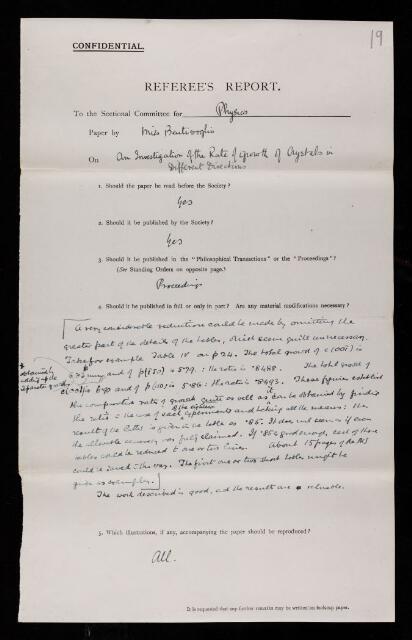 CONFIDENTIAL.
19
REFEREE'S REPORT.
To the Sectional Committee for Physics
Paper by Miss Bentivoglio
On An Investigation of the Rate of Growth of Crystals in
Different Directions
1. Should the paper be read before the Society?
Yes
2. Should it be published by the Society?
Yes
3. Should it be published in the "Philosophical Transactions" or the "Proceedings"?
(See Standing Orders on opposite page.)
Proceedings
4. Should it be published in full or only in part? Are any material modifications necessary?
[A very considerable reduction could be made by omitting the
greater part of the details of the tables, which seem quite unnecessary.
Take for example Table IV on p 24. The total growth of c(001) is
and of = 5.79. : the ratio is .8488. The total growth of
and of p(110) is 5.86 : the ratio is .8693. These figures establish
the comparative rates of growth quite as well as can be obtained by finding
the ratio of each and taking all the means : the
result of the is given in the table as .85. It does not seem as if even
the accuracy was fully claimed. If .85 is good enough, each of these
tables could be reduced to one or two lines. About 15 pages of the MS
could be saved in this way. The first one or two short tables might be
given as examples.]
The work described is good, and the results are valuable.
* obtained by
adding up the
separate growths
5. Which illustrations, if any, accompanying the paper should be reproduced?
All.
It is requested that any further remarks may be written on back of paper.